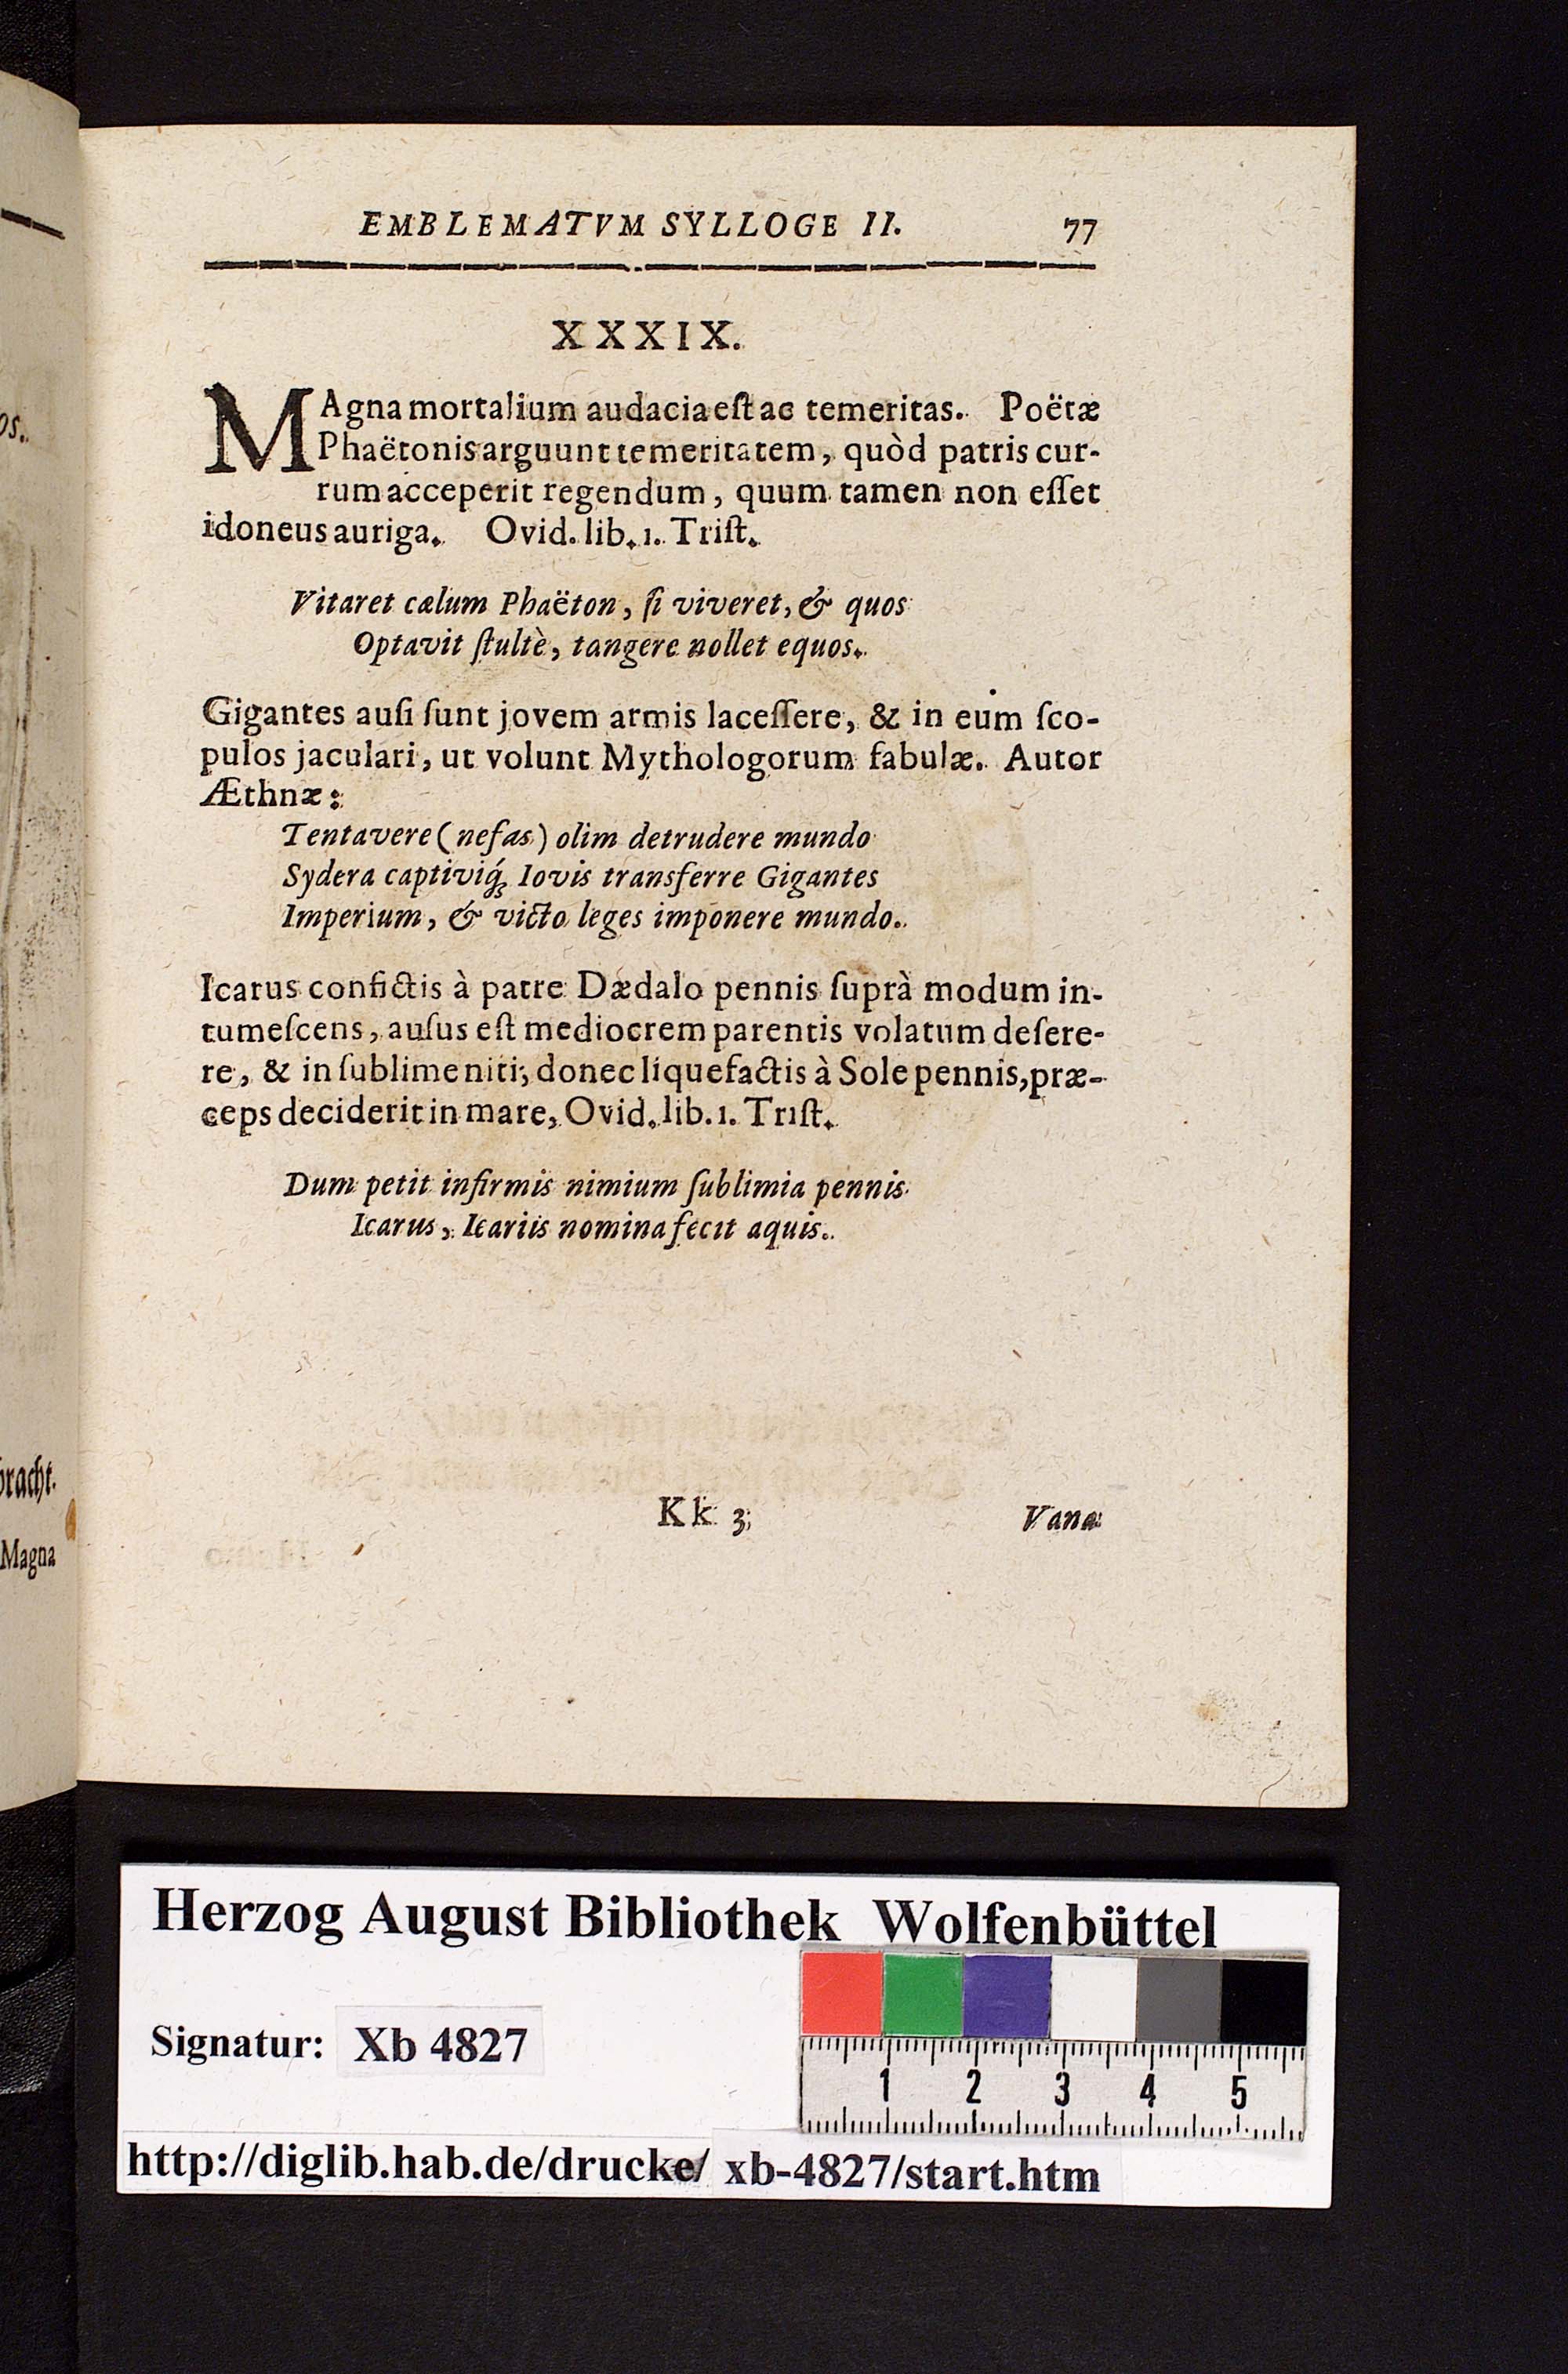 EMBLEMATVM SYLLOGE II. 77
XXXIX.
MAgna mortalium audacia eſt ac temeritas. Poëtæ
Phaëtonis arguunt temeritatem, quòd patris cur-
rum acceperit regendum, quum tamen non eſſet
idoneus auriga. Ovid. lib. 1. Triſt.
Vitaret cælum Phaëton, ſi viveret, & quos
Optavit ſtultè, tangere nollet equos.
Gigantes auſi ſunt jovem armis laceſſere, & in eum ſco-
pulos jaculari, ut volunt Mythologorum fabulæ. Autor
Æthnæ:
Tentavere (nefas) olim detrudere mundo
Sydera captiviq́ꝫ Iovis transferre Gigantes
Imperium, & victo leges imponere mundo.
Icarus confictis à patre Dædalo pennis ſuprà modum in-
tumeſcens, auſus eſt mediocrem parentis volatum deſere-
re, & in ſublime niti, donec liquefactis à Sole pennis, præ-
ceps deciderit in mare, Ovid. lib. 1. Triſt.
Dum petit infirmis nimium ſublimia pennis
Icarus, Icariis nomina fecit aquis.
Kk 3 Vana
os.
bracht.
Magna
Herzog August Bibliothek Wolfenbüttel
Signatur: Xb 4827
1 2 3 4 5
http://diglib.hab.de/drucke/ xb-4827/start.htm